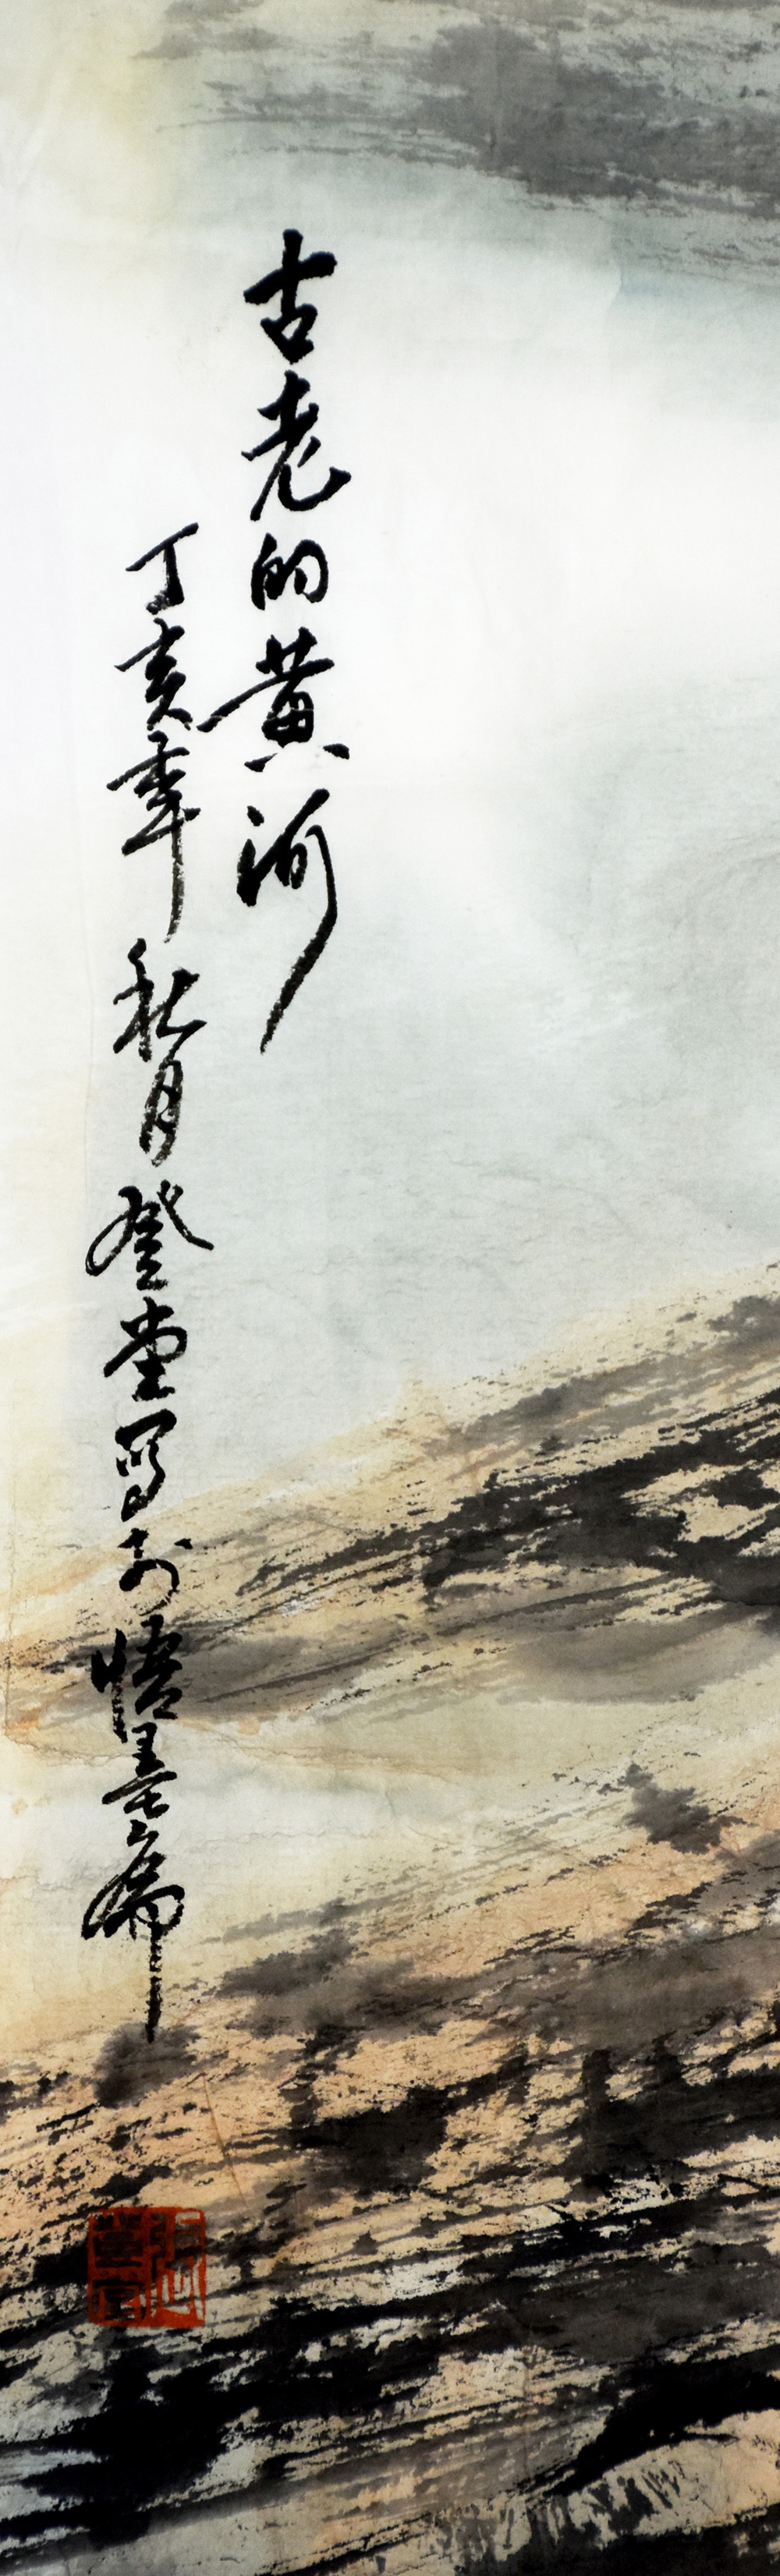 古老的黄河
丁亥年秋月登堂写于悟墨斋